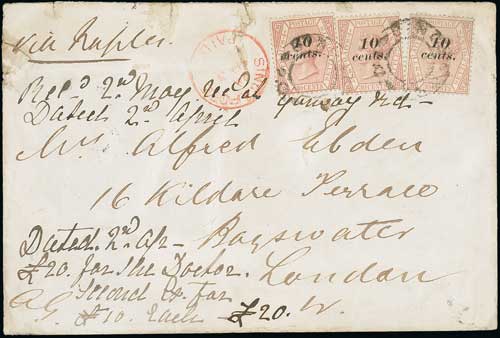 via Naples
10 cents.
10 cents.
10 cents.
PAID
Rec.d 2nd May
Dated 2nd April
Mrs Alfred Ebden
16 Kildare Terrace
Bayswater
London
W.
Dated 2nd Ap–
£20. for the Doctor.
Second Ex. for
£10. Each £20.
AG